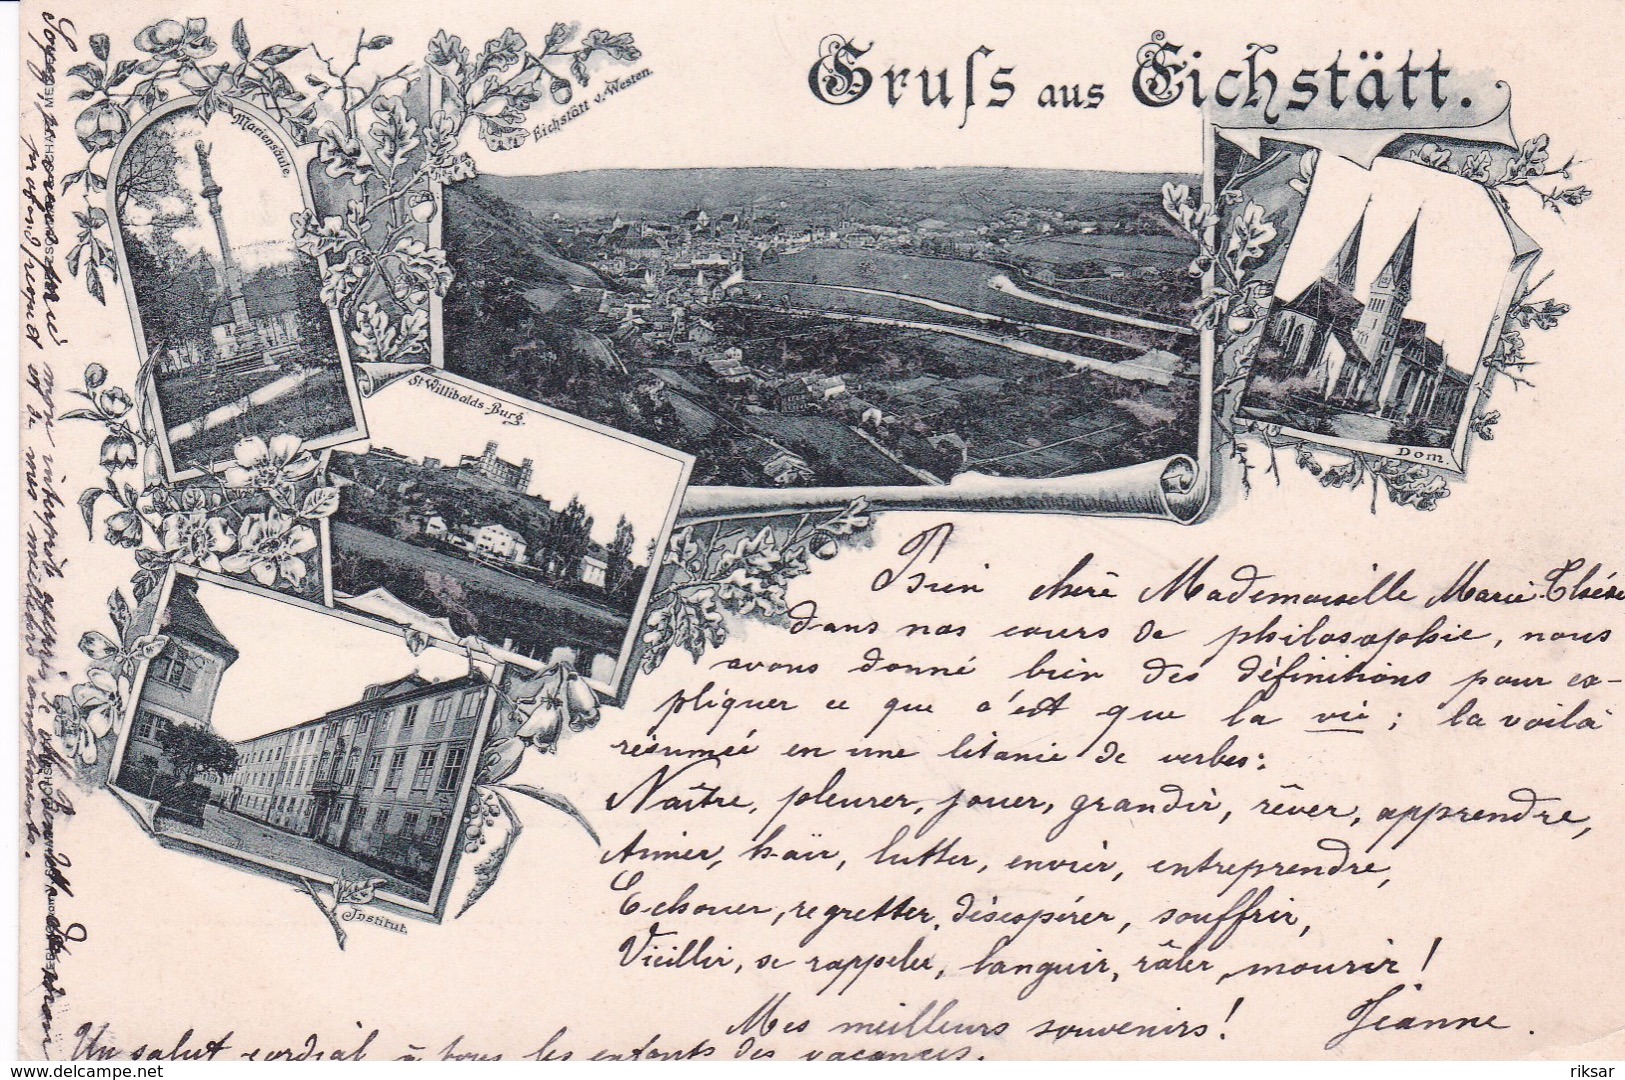 Gruſs aus Eichstätt.
Mariensäule.
Eichstätt v. Westen.
St Willibalds-Burg.
Dom.
Institut.
Bien chère Mademoiselle Marie-Thérèse
dans nos cours de philosophie, nous
avons donné bien des définitions pour ex-
pliquer ce que c'est que la vie ; la voilà
résumée en une litanie de verbes:
Naître, pleurer, jouer, grandir, rêver, apprendre,
Aimer, haïr, lutter, envier, entreprendre,
Echouer, regretter, désespérer, souffrir,
Vieillir, se rappeler, languir, râler, mourir !
Mes meilleurs souvenirs! Jeanne.
Un salut cordial à tous les enfants des vacances.
Soyez, mon interprète auprès de
profond respect et de mes meilleurs compliments.
delcampe.net
riksar